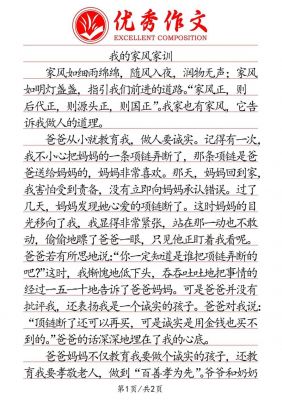 优秀作文
EXCELLENT COMPOSITION
我的家风家训
家风如细雨绵绵，随风入夜，润物无声；家风
如明灯盏盏，指引我们前进的道路。“家风正，则
后代正，则源头正，则国正”。我家也有家风，它告
诉我做人的道理。
爸爸从小就教育我，做人要诚实。记得有一次，
我不小心把妈妈的一条项链弄断了，那条项链是爸
爸送给妈妈的，妈妈非常喜欢。那天，妈妈回到家，
我害怕受到责备，没有立即向妈妈承认错误。过了
几天，妈妈发现她心爱的项链断了。这时妈妈的目
光移向了我，我显得非常紧张，站在那一动也不敢
动，偷偷地瞟了爸爸一眼，只见他正盯着我看呢。
爸爸若有所思地说：“你一定知道是谁把项链弄断的
吧？”这时，我惭愧地低下头，吞吞吐吐地把事情的
经过一五一十地告诉了爸爸妈妈。可是爸爸并没有
批评我，还表扬我是一个诚实的孩子。爸爸对我说：
“项链断了还可以再买，可是诚实是用金钱也买不
到的。”爸爸的话深深地埋在了我的心底。
爸爸妈妈不仅教育我要做个诚实的孩子，还教
育我要孝敬老人，做到“百善孝为先”。爷爷和奶奶
第1页/共2页